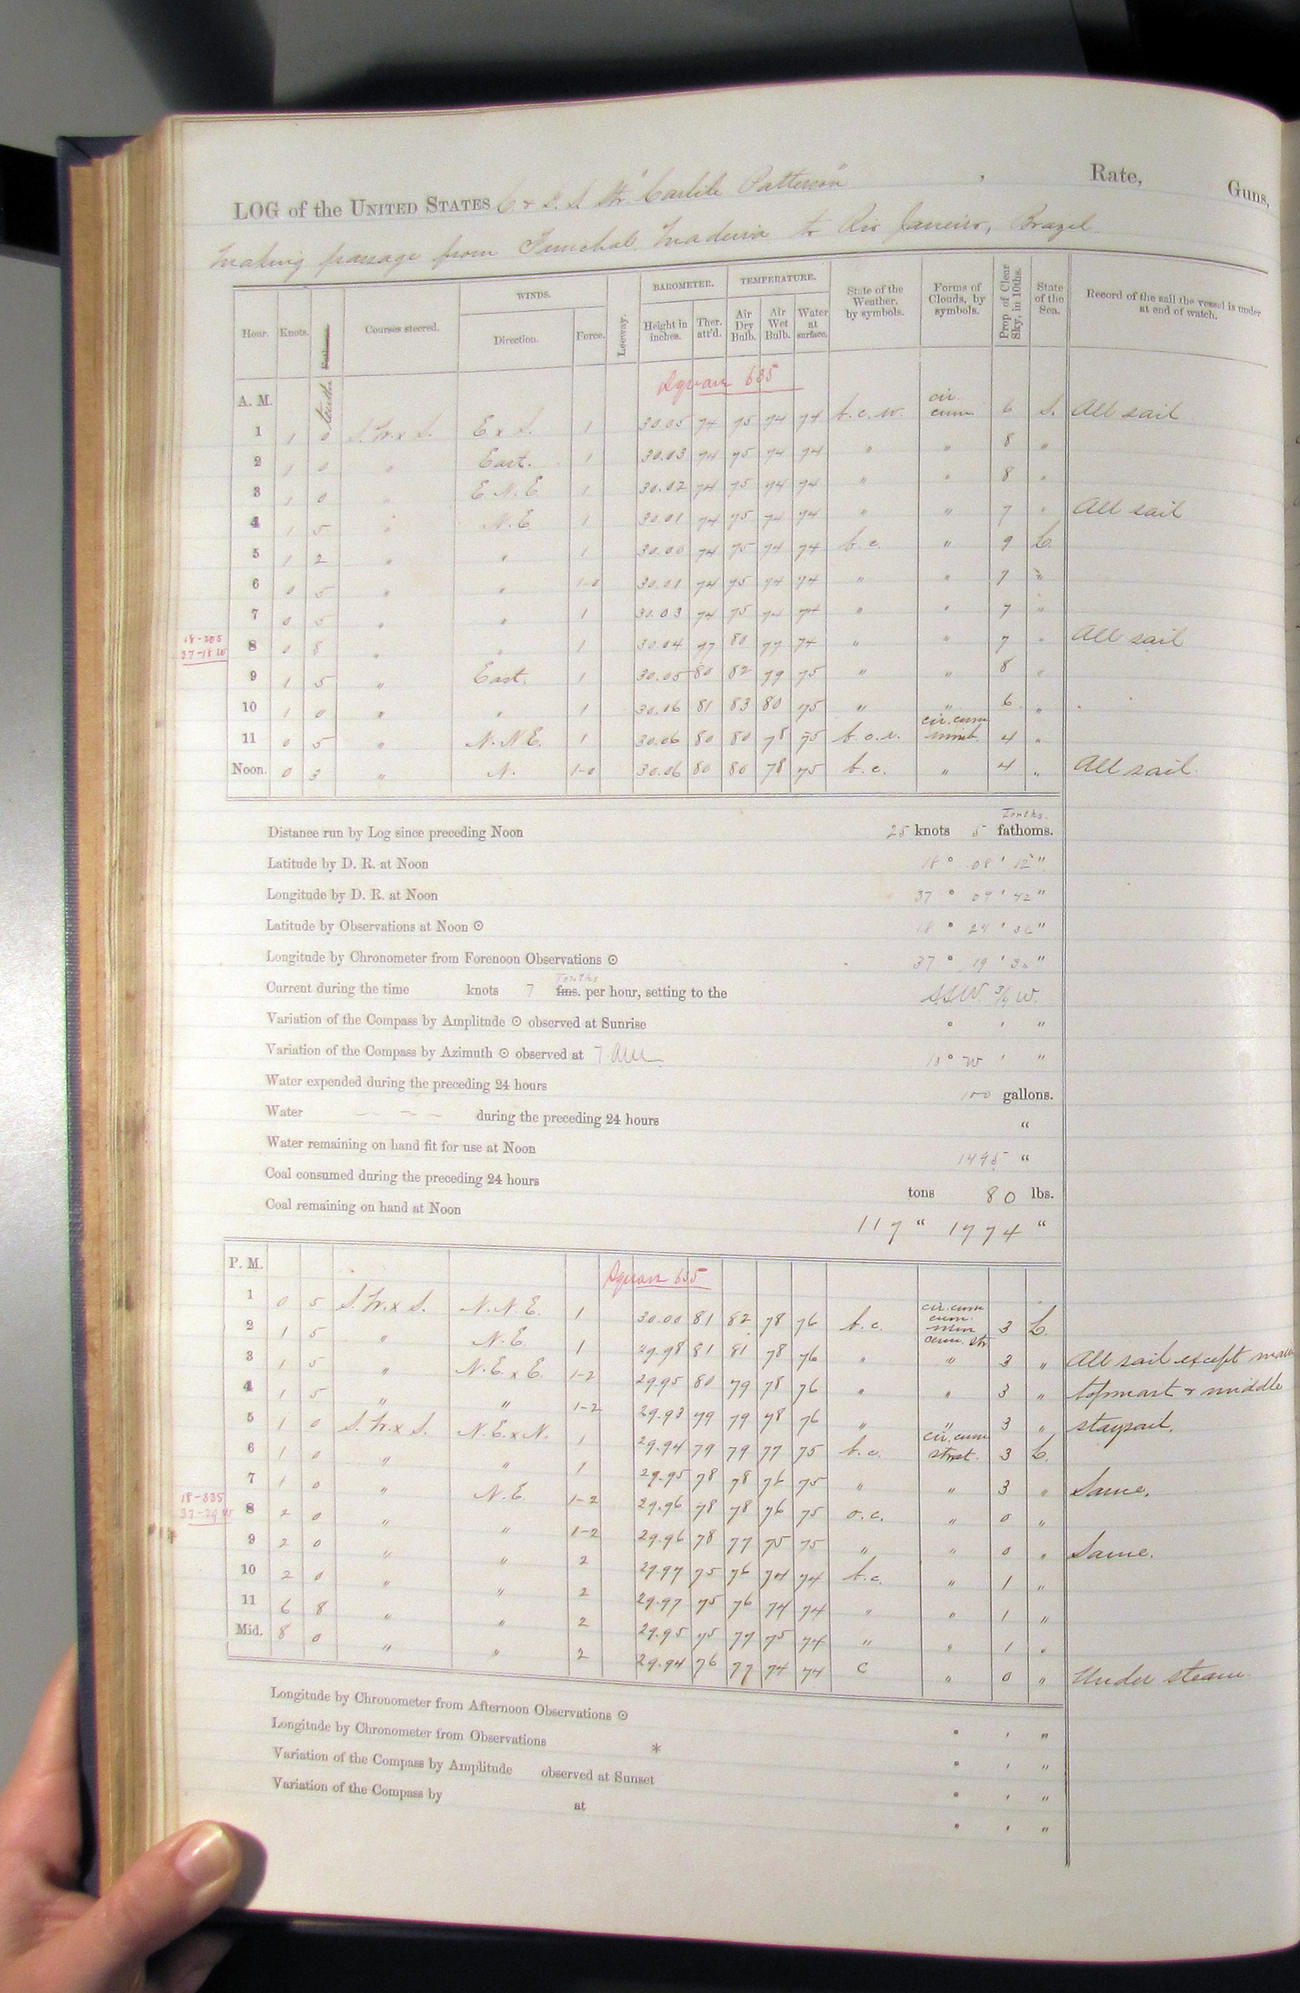 LOG of the UNITED STATES C. & G. S. Str. "Carlile Patterson" , Rate, Guns,
Making passage from Funchal Madeira to Rio Janeiro, Brazil.
Hour. Knots. Fathoms. tenths Courses steered. WINDS. Direction. Force. Leeway. BAROMETER. Height in inches. Ther. att'd. TEMPERATURE. Air Dry Bulb. Air Wet Bulb. Water at surface. State of the Weather, by symbols. Forms of Clouds, by symbols. Prop. of Clear Sky, in 10ths. State of the Sea. Record of the sail the vessel is under at end of watch.
A. M. Square 635
1 1 0 S.W.x S. E x S. 1 30.05 74 75 74 74 b.c.w. cir. cum 6 S. All sail
2 1 0 " East. 1 30.03 74 75 74 74 " " 8 "
3 1 0 " E.N.E. 1 30.02 74 75 74 74 " " 8 "
4 1 5 " N.E 1 30.01 74 75 74 74 " " 7 " All sail
5 1 2 " " 1 30.00 74 75 74 74 b.c. " 9 L.
6 0 5 " " 1-0 30.01 74 75 74 74 " " 7 "
7 0 5 " " 1 30.03 74 75 74 74 " " 7 "
18-20S
37-18 W
8 0 8 " " 1 30.04 77 80 77 74 " " 7 " All sail
9 1 5 " East. 1 30.05 80 82 79 75 " " 8 "
10 1 0 " " 1 30.06 81 83 80 75 " " 6 "
11 0 5 " N.N.E. 1 30.06 80 80 78 75 cir. cum nimb. 4 "
Noon. 0 3 " N. 1-0 30.06 80 80 78 75 b.c. " 4 " All sail.
Distance run by Log since preceding Noon 25 knots 5 Tenths. fathoms.
Latitude by D. R. at Noon 18 ° 08 ' 12 "
Longitude by D. R. at Noon 37 ° 09 ' 42 "
Latitude by Observations at Noon ⊙ 18 ° 24 ' 36 "
Longitude by Chronometer from Forenoon Observations ⊙ 37 ° 19 ' 30 "
Current during the time knots 7 Tenths fms. per hour, setting to the SSW 3/4 W.
Variation of the Compass by Amplitude ⊙ observed at Sunrise ° ' "
Variation of the Compass by Azimuth ⊙ observed at 7 AM ° W ' "
Water expended during the preceding 24 hours 100 gallons.
Water — — — during the preceding 24 hours "
Water remaining on hand fit for use at Noon 1495 "
Coal consumed during the preceding 24 hours tons 80 lbs.
Coal remaining on hand at Noon 117 " 1774 "
P. M. Square 635
1 0 5 S.W.x S. N.N.E. 1 30.00 81 82 78 76 b.c. cir. cum cum. nim cum. str 3 L.
2 1 5 " N.E. 1 29.98 81 81 78 76 " " 3 " All sail except main
3 1 5 " N.E.x E. 1-2 29.95 80 79 78 76 " " 3 " topmast & middle
4 1 5 " " 1-2 29.93 79 79 78 76 " " 3 " staysail.
5 1 0 S.W.x S. N.E.x N. 1 29.94 79 79 77 75 b.c. cir. cum strat. 3 L.
6 1 0 " " 1 29.95 78 78 76 75 " " 3 " Same.
7 1 0 " N.E. 1-2 29.96 78 78 76 75 o.c. " 0 "
18-33S
37-29 W
8 2 0 " " 1-2 29.96 78 77 75 75 " " 0 " Same.
9 2 0 " " 2 29.97 75 76 74 74 b.c. " 1 "
10 2 0 " " 2 29.97 75 76 74 74 " " 1 "
11 6 8 " " 2 29.95 75 77 75 74 " " 1 "
Mid. 8 0 " " 2 29.94 76 77 74 74 c " 0 " Under steam
Longitude by Chronometer from Afternoon Observations ⊙ ° ' "
Longitude by Chronometer from Observations * ° ' "
Variation of the Compass by Amplitude observed at Sunset ° ' "
Variation of the Compass by at ° ' "